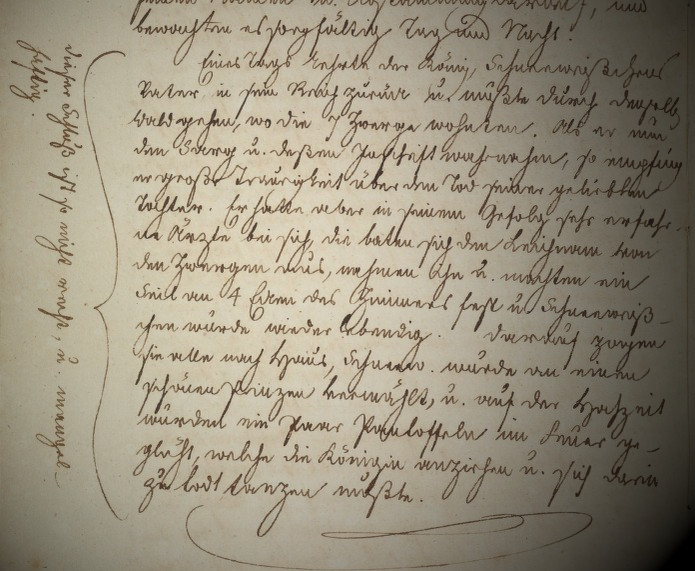 bewachten es sorgfältig Tag und Nacht.
Eines Tags kehrte der König, Schneeweißchens
Vater in sein Reich zurück u. mußte durch denselb
Wald gehen, wo die 7 Zwerge wohnten. Als er nun
den Sarg u. deßen Inschrift wahrnahm, so empfing
er große Traurigkeit über den Tod seiner geliebten
Tochter. Er hatte aber in seinem Gefolg sehr erfahr-
ne Ärzte bei sich, die baten sich den Leichnam von
den Zwergen aus, nahmen ihn u. machten ein
Seil an 4 Ecken des Zimmers fest u. Schneeweiß-
chen wurde wieder lebendig. Darauf zogen
sie alle nach Haus, Schneew. wurde an einen
schönen Prinzen vermählt, u. auf der Hochzeit
wurden ein Paar Pantoffeln im Feuer ge-
glüht, welche die Königin anziehen u. sich darin
zu todt tanzen mußte.
dieser Schluß ist so nicht recht, u. mangel-
haftig.